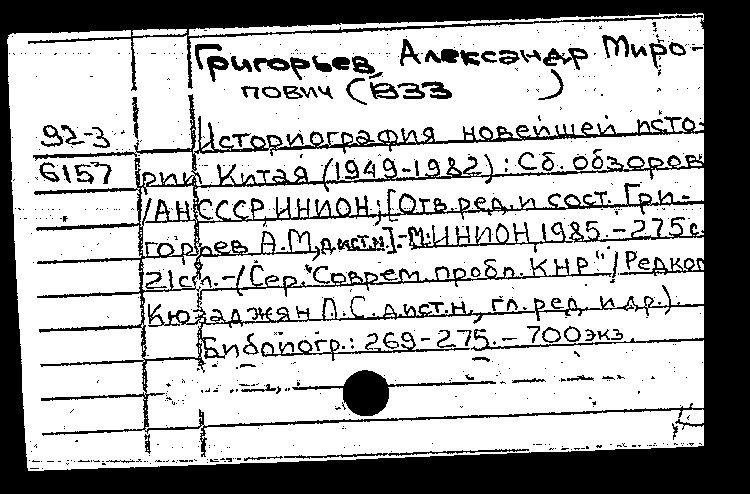 Григорьев, Александр Миро-
пович (1933 )
92-3 Историография новейшей исто-
6157 рии Китая (1949-1982): Сб. обзоров
/АН СССР. ИНИОН; [Отв. ред. и сост. Гри-
горьев А.М., д.ист.н.].-М.: ИНИОН, 1985.-275с.
21см.-(Сер. "Соврем. пробл. КНР"/Редкол
Кюзаджян Л.С. д.ист.н., гл. ред. и др.).
Библиогр.: 269-275.-700экз.